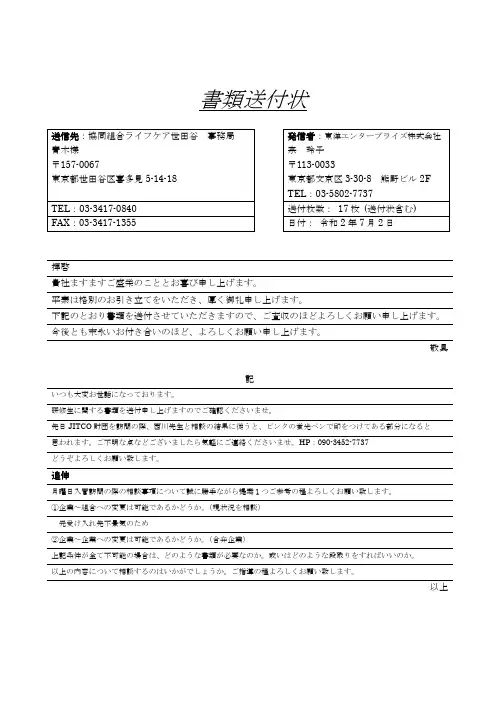 書類送付状
送信先：協同組合ライフケア世田谷　事務局
青木様
〒157-0067
東京都世田谷区喜多見 5-14-18
TEL：03-3417-0840
FAX：03-3417-1355
発信者：東洋エンタープライズ株式会社
宗　玲子
〒113-0033
東京都文京区 3-30-8　熊野ビル 2F
TEL：03-5802-7737
送付枚数： 17 枚 (送付状含む)
日付： 令和 2 年 7 月 2 日
拝啓
貴社ますますご盛栄のこととお喜び申し上げます。
平素は格別のお引き立てをいただき、厚く御礼申し上げます。
下記のとおり書類を送付させていただきますので、ご査収のほどよろしくお願い申し上げます。
今後とも末永いお付き合いのほど、よろしくお願い申し上げます。
敬具
記
いつも大変お世話になっております。
研修生に関する書類を送付申し上げますのでご確認くださいませ。
先日 JITCO 財団を訪問の際、西川先生と相談の結果に従うと、ピンクの蛍光ペンで印をつけてある部分になると
思われます。ご不明な点などございましたら気軽にご連絡くださいませ。HP：090-3452-7737
どうぞよろしくお願い致します。
追伸
月曜日入管訪問の際の相談事項について誠に勝手ながら提案 1 つご参考の程よろしくお願い致します。
①企業～組合への変更は可能であるかどうか。（現状況を相談）
先受け入れ先不景気のため
②企業～企業への変更は可能であるかどうか。（合弁企業）
上記条件が全て不可能の場合は、どのような書類が必要なのか。或いはどのような段取りをすればいいのか。
以上の内容について相談するのはいかがでしょうか。ご指導の程よろしくお願い致します。
以上